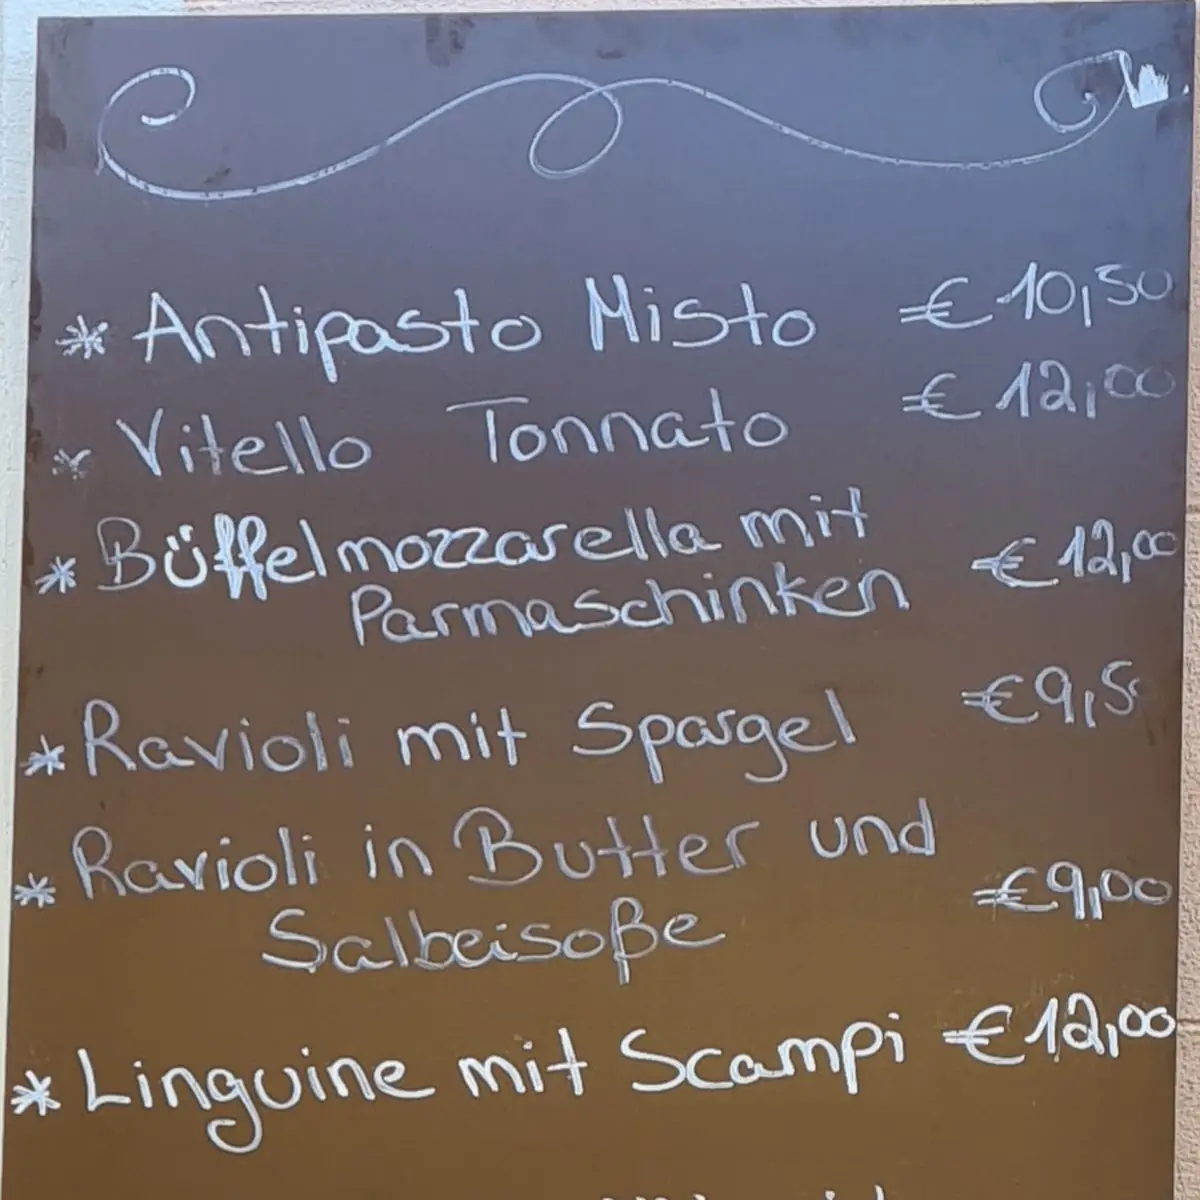 * Antipasto Misto € 10,50
* Vitello Tonnato € 12,00
* Büffelmozzarella mit
Parmaschinken € 12,00
* Ravioli mit Spargel € 9,50
* Ravioli in Butter und
Salbeisoße € 9,00
* Linguine mit Scampi € 12,00